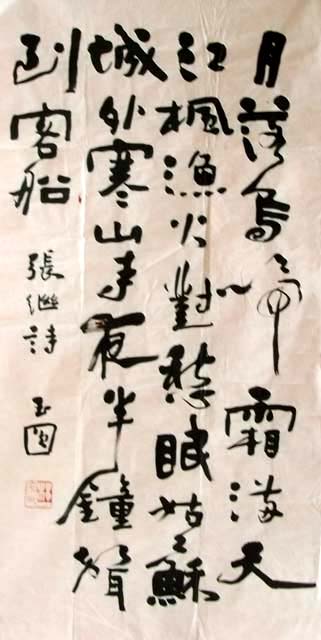 月落烏啼霜满天
江楓漁火對愁眠姑蘇
城外寒山寺夜半鐘聲
到客船
張繼詩